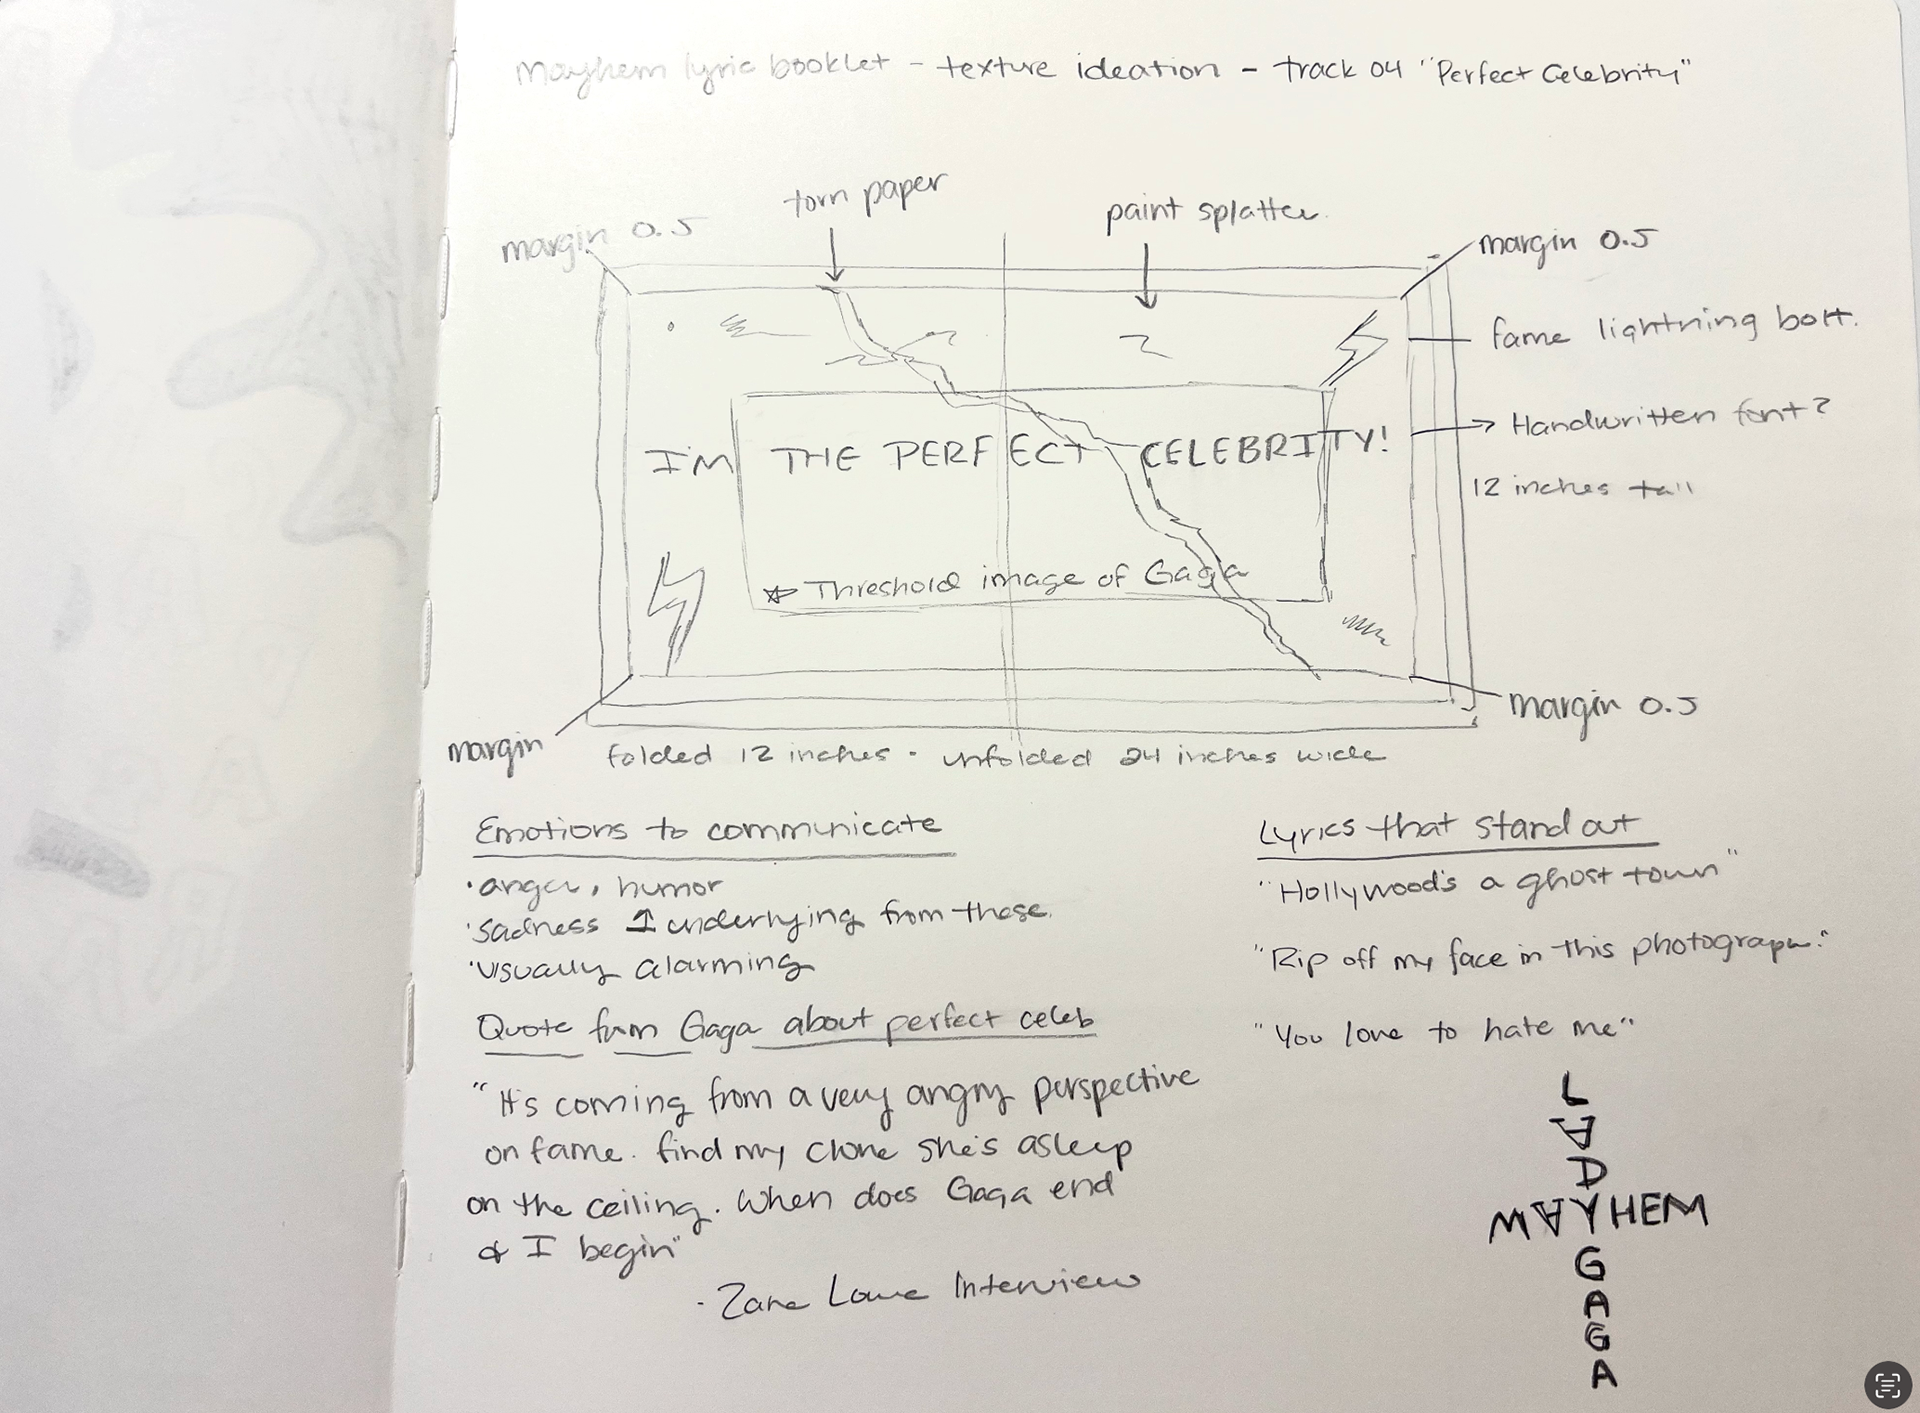 Mayhem lyric booklet - texture ideation - track 04 "Perfect Celebrity"
torn paper
paint splatter
margin 0.5
margin 0.5
fame lightning bolt.
Handwritten font?
I'M THE PERFECT CELEBRITY!
12 inches tall
* Threshold image of Gaga
margin 0.5
margin
folded 12 inches - unfolded 24 inches wide
Emotions to communicate
• anger, humor
• sadness ↥ underlying from these.
• visually alarming
Quote from Gaga about perfect celeb
"It's coming from a very angry perspective
on fame. find my clone she's asleep
on the ceiling. When does Gaga end
& I begin"
- Zane Lowe Interview
Lyrics that stand out
"Hollywood's a ghost town"
"Rip off my face in this photograph."
"You love to hate me"
L
A
D
MAYHEM
G
A
G
A